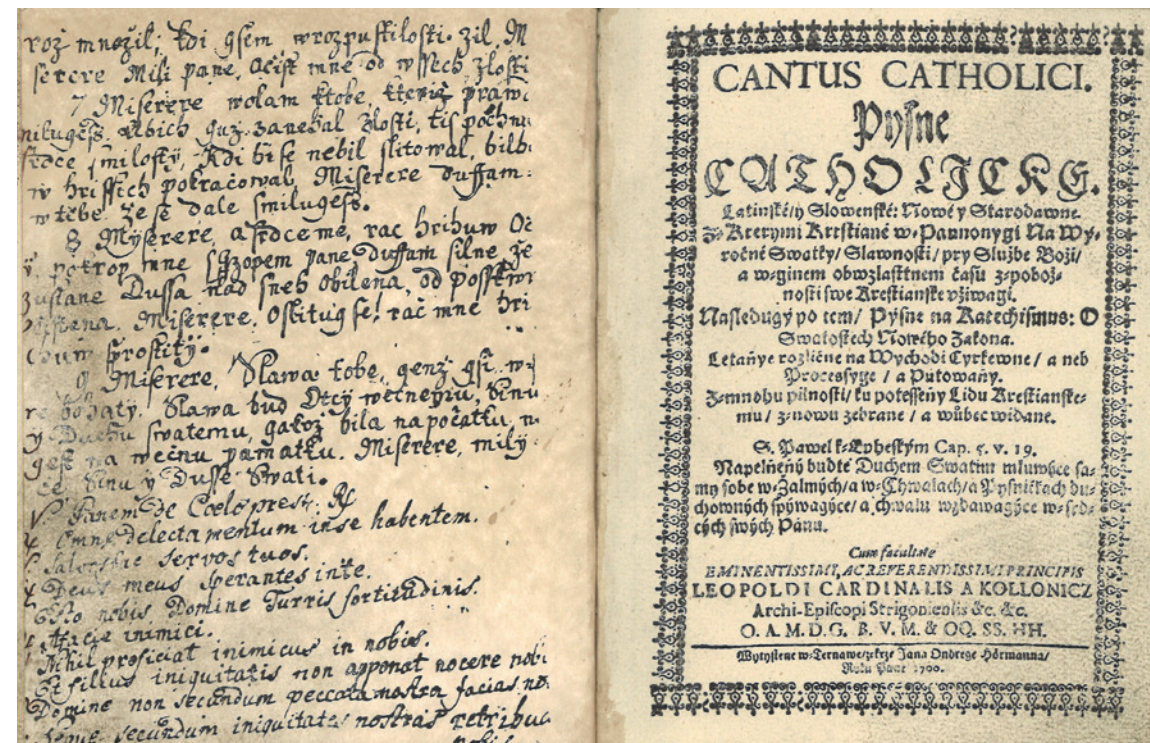 rož množil; kdi gsem wrozpustilosti zil M
serere Mili pane, očist mne od wssech zlosti
7 Miserere wolam ktobe, kteriž prawe
milugess. Abich guž zanehal zlosti, tis pohnu
srdce smilosti, Kdi bi se nebil slitowal, bilbi
w hrissich pokračowal, Miserere duffam
w tebe že se dale smilugess.
8 Myserere, a srdce me, rac hrihuw Oč
pokrop mne Izopem pane Duffam silne, že
zustane Dussa nad sneh obilena, od
Miserere, Oslitug se! rač mne hri
chuw sprostitÿ.
9 Miserere, Slawa tobe, genž gsi w
bohatÿ. Slawa bud Otcÿ wečnemu, Sinu
y Duchu swatemu, gakož bila na počatku, n
na wečnu pamatku. Miserere, milÿ
Sinu ÿ Dusse Swati.
V Panem de Coelo prest: R
Omne delectamentum in se habentem.
servos tuos.
Deus meus sperantes in te.
Esto nobis Domine Turris fortitudinis.
A facie inimici.
Nihil proficiat inimicus in nobis.
Et filius iniquitatis non apponat nocere nobi
Domine non secundum peccata nostra facias no
Neque secundum iniquitates nostras retribua
nobis
CANTUS CATHOLICI.
Pysne
CATHOLICKE.
Latinské/y Slowenské: Nowé y Starodawne.
Z-Kterymi Krestiané w-Pannonygi Na Wy-
ročné Swatky/ Slawnosti/ pry Službe Boži/
a w-ginem obwzlasstnem času z-pobož-
nosti swe Krestianske vžiwagi.
Nasledugý po tem/ Pysne na Katechismus: O
Swatostech Nowého Zakona.
Letanye rozličné na Wychodi Cyrkewne/ a neb
Processyge/ a Putowaňy.
Z-mnohu pilnosti/ ku potesseny Lidu Krestianske-
mu/ z-nowu zebrane/ a wůbec widane.
S. Pawel k-Epheským Cap. 5. v. 19.
Napelňeňý budte Duchem Swatim mluwice sa-
my sobe w-Žalmých/a w-Chwalach/a Pysničkach du-
chowných spýwagýce/ a chwalu wzdawagýce w-srd-
cých swých Pánu.
Cum facultate
EMINENTISSIMI, AC REVERENDISSIMI PRINCIPIS
LEOPOLDI CARDINALIS A KOLLONICZ
Archi-Episcopi Strigoniensis &c. &c.
O. A. M. D. G. B. V. M. & OO. SS. HH.
Wytysstene w-Ternawe/ skrze Jana Ondrege Hörmanna/
Roku Pane 1700.